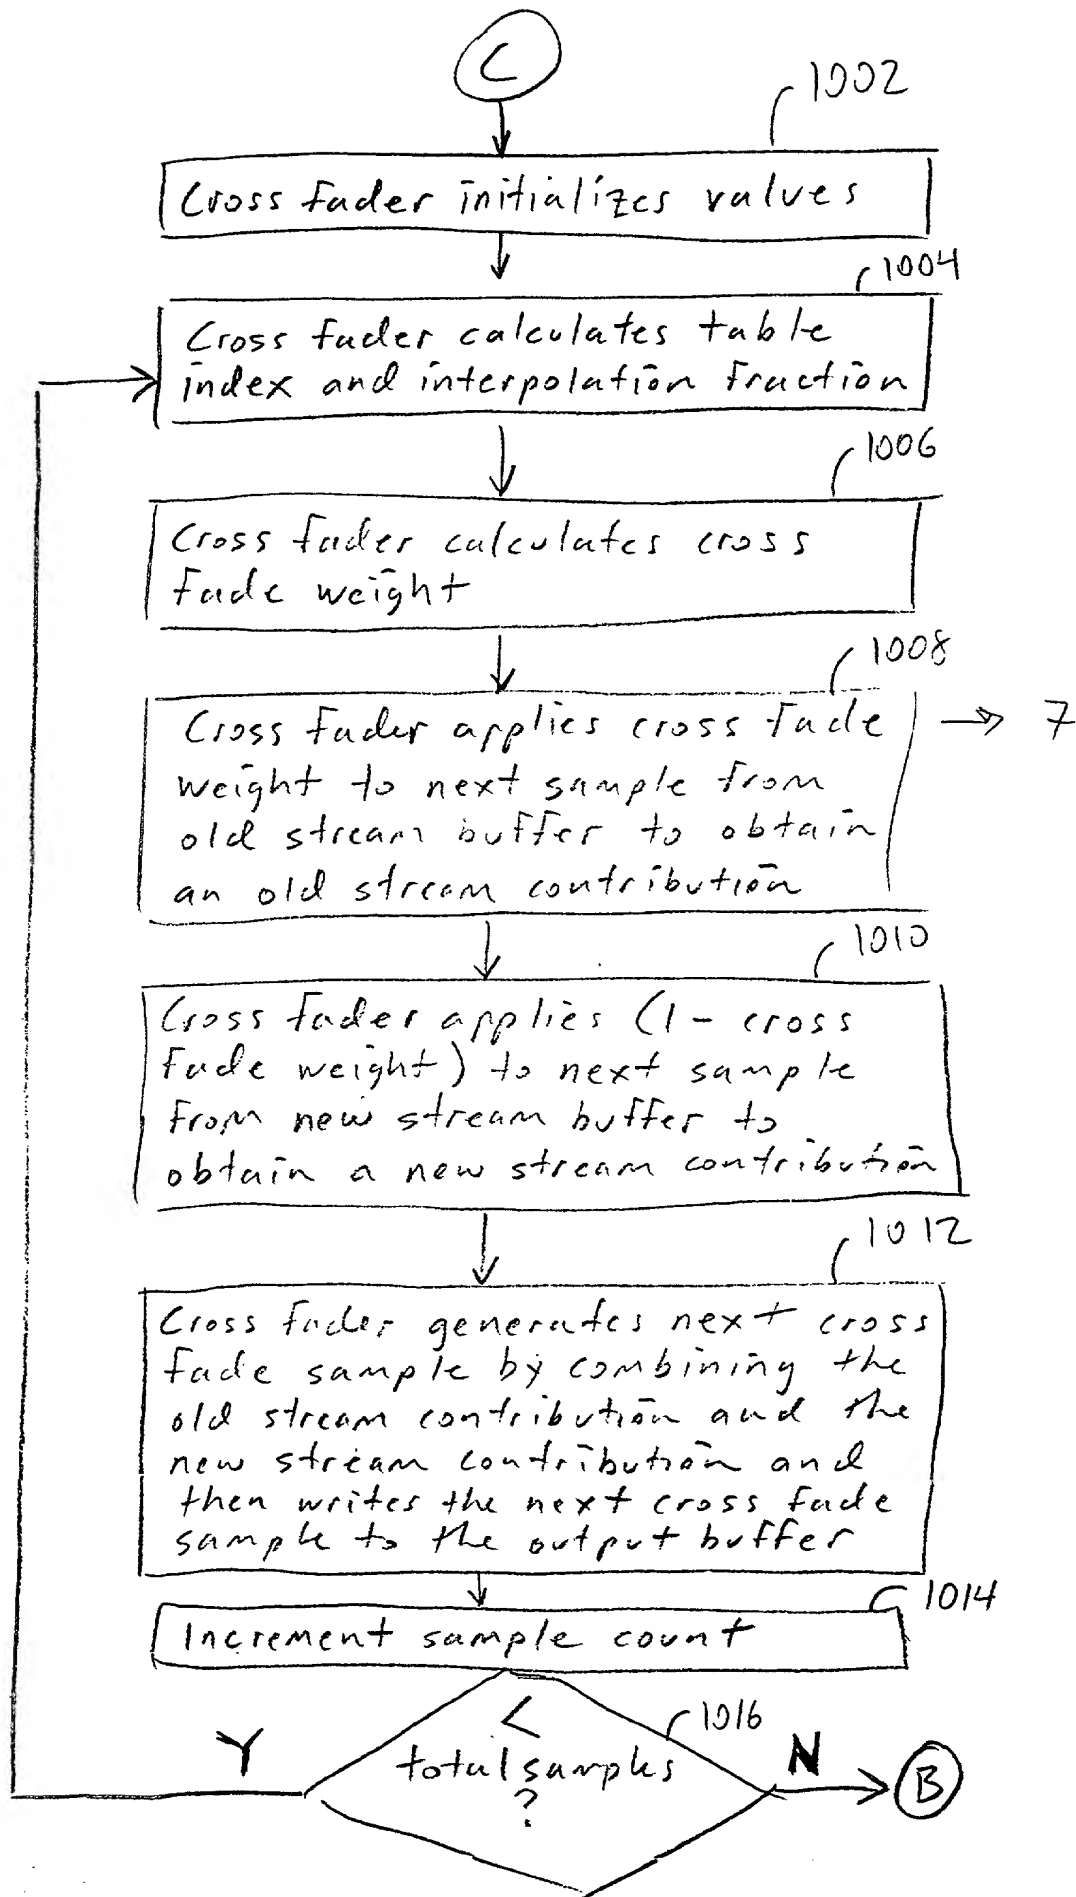 C
1002
Cross fader initializes values
1004
Cross fader calculates table
index and interpolation fraction
1006
Cross fader calculates cross
fade weight
1008
Cross fader applies cross fade
weight to next sample from
old stream buffer to obtain
an old stream contribution
7
1010
Cross fader applies (1 - cross
fade weight) to next sample
from new stream buffer to
obtain a new stream contribution
1012
Cross fader generates next cross
fade sample by combining the
old stream contribution and the
new stream contribution and
then writes the next cross fade
sample to the output buffer
1014
Increment sample count
1016
<
total samples
?
Y
N
B